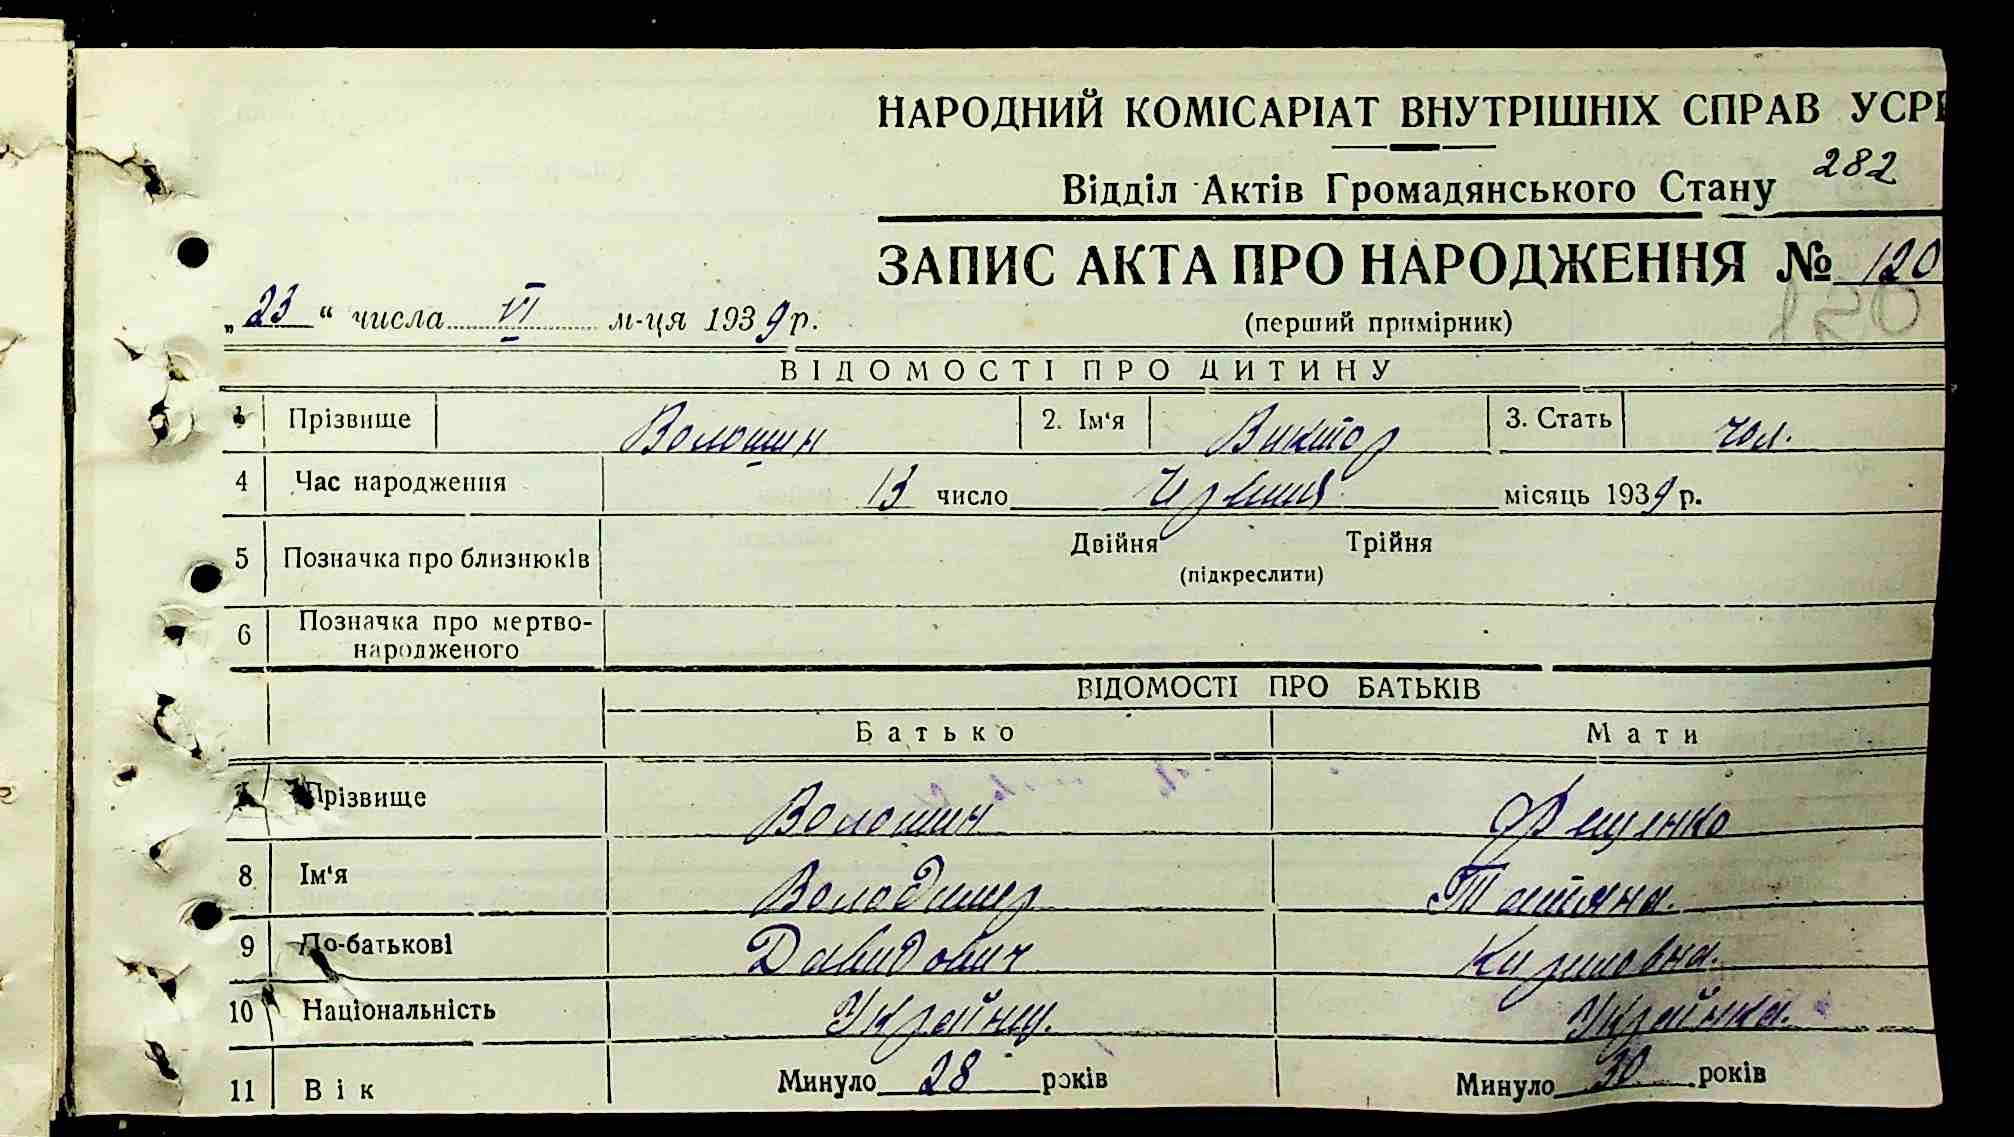 НАРОДНИЙ КОМІСАРІАТ ВНУТРІШНІХ СПРАВ УСРР
282
Відділ Актів Громадянського Стану
ЗАПИС АКТА ПРО НАРОДЖЕННЯ № 120
120
„23“ числа VI м-ця 1939 р.
(перший примірник)
ВІДОМОСТІ ПРО ДИТИНУ
1 Прізвище Волошин 2. Ім'я Виктор 3. Стать чол.
4 Час народження 13 число Червня місяць 1939 р.
5 Позначка про близнюків Двійня Трійня
(підкреслити)
6 Позначка про мертво-
народженого
ВІДОМОСТІ ПРО БАТЬКІВ
Батько Мати
7 Прізвище Волошин Фещенко
8 Ім'я Володимир Татьяна.
9 По-батькові Давидович Кириловна.
10 Національність Українец. Українка.
11 Вік Минуло 28 років Минуло 30 років